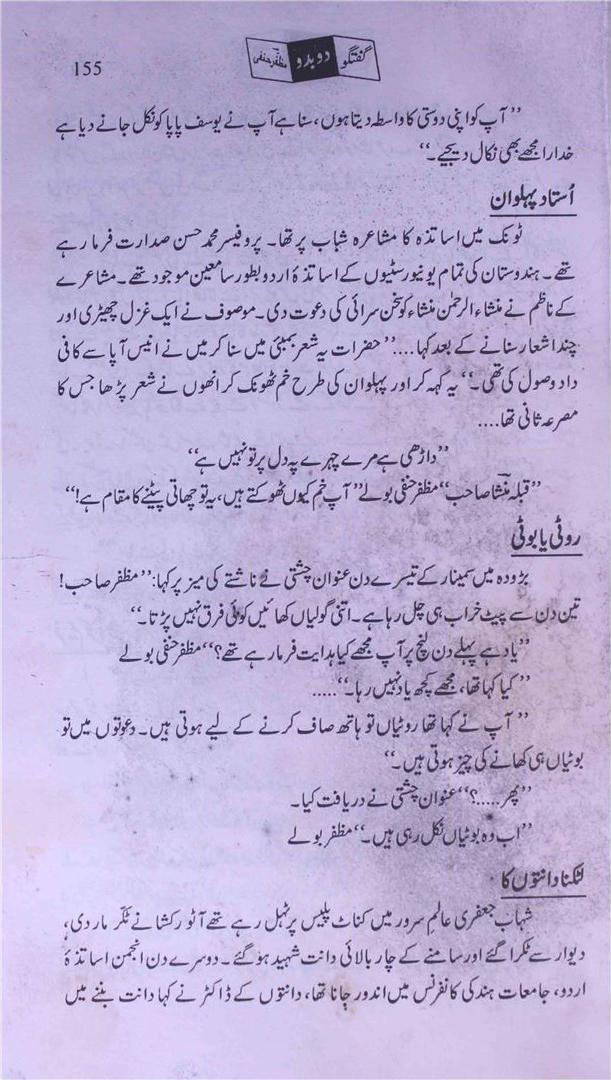 155
گفتگو دوبدو مظفر حنفی
’’آپ کو اپنی دوستی کا واسطہ دیتا ہوں، سنا ہے آپ نے یوسف پاپا کو نکل جانے دیا ہے
خدارا مجھے بھی نکال دیجیے۔‘‘
اُستاد پہلوان
ٹونک میں اساتذہ کا مشاعرہ شباب پر تھا۔ پروفیسر محمد حسن صدارت فرما رہے
تھے۔ ہندوستان کی تمام یونیورسٹیوں کے اساتذۂ اردو بطور سامعین موجود تھے۔ مشاعرے
کے ناظم نے منشاء الرحمٰن منشاء کو سخن سرائی کی دعوت دی۔ موصوف نے ایک غزل چھیڑی اور
چند اشعار سنانے کے بعد کہا....’’حضرات یہ شعر بمبئی میں سنا کر میں نے انیس آپا سے کافی
داد وصول کی تھی۔‘‘ یہ کہہ کر اور پہلوان کی طرح خم ٹھونک کر انھوں نے شعر پڑھا جس کا
مصرعہ ثانی تھا....
’’داڑھی ہے مرے چہرے پہ دل پر تو نہیں ہے‘‘
’’قبلہ منشا صاحب‘‘ مظفر حنفی بولے ’’آپ خم کیوں ٹھوکتے ہیں، یہ تو چھاتی پیٹنے کا مقام ہے!‘‘
روٹی یا بوٹی
بڑودہ میں سمینار کے تیسرے دن عنوان چشتی نے ناشتے کی میز پر کہا: ’’مظفر صاحب!
تین دن سے پیٹ خراب ہی چل رہا ہے۔ اتنی گولیاں کھائیں کوئی فرق نہیں پڑتا۔‘‘
’’یاد ہے پہلے دن لنچ پر آپ مجھے کیا ہدایت فرما رہے تھے؟‘‘ مظفر حنفی بولے
’’کیا کہا تھا، مجھے کچھ یاد نہیں رہا۔‘‘.....
’’آپ نے کہا تھا روٹیاں تو ہاتھ صاف کرنے کے لیے ہوتی ہیں۔ دعوتوں میں تو
بوٹیاں ہی کھانے کی چیز ہوتی ہیں۔‘‘
’’پھر.....؟‘‘ عنوان چشتی نے دریافت کیا۔
’’اب وہ بوٹیاں نکل رہی ہیں۔‘‘ مظفر بولے
لٹکنا دانتوں کا
شہاب جعفری عالمِ سرور میں کناٹ پلیس پر ٹہل رہے تھے آٹو رکشا نے ٹکّر مار دی،
دیوار سے ٹکرا گئے اور سامنے کے چار بالائی دانت شہید ہو گئے۔ دوسرے دن انجمن اساتذۂ
اردو، جامعات ہند کی کانفرنس میں اندور جانا تھا، دانتوں کے ڈاکٹر نے کہا دانت بننے میں